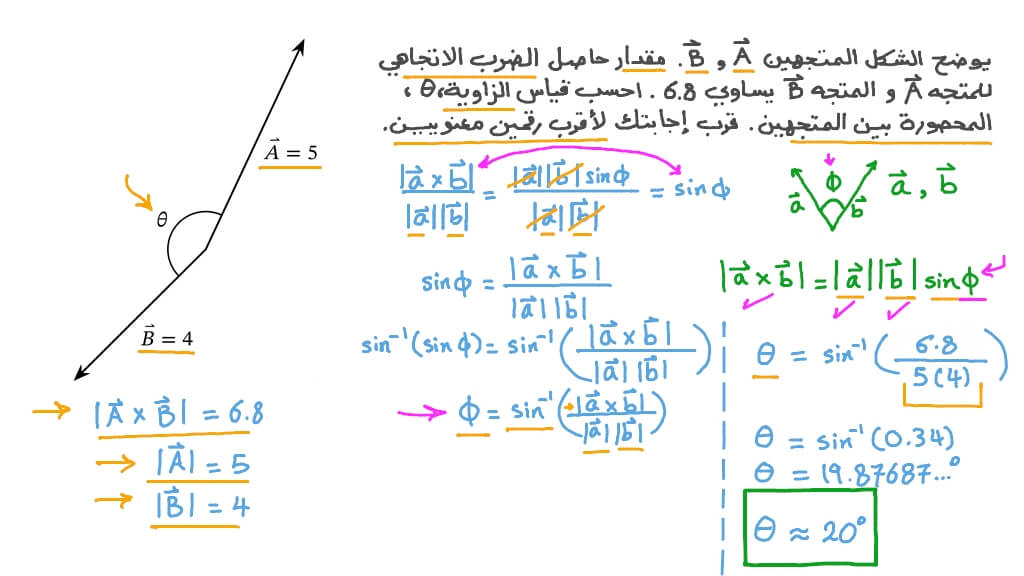 يوضح الشكل المتجهين A⃗ و B⃗. مقدار حاصل الضرب الاتجاهي
للمتجه A⃗ و المتجه B⃗ يساوي 6.8. احسب قياس الزاوية، θ،
المحصورة بين المتجهين. قرب إجابتك لأقرب رقمين معنويين.
A⃗ = 5
θ
B⃗ = 4
|A⃗ × B⃗| = 6.8
|A⃗| = 5
|B⃗| = 4
|a⃗ × b⃗| / |a⃗||b⃗| = |a⃗||b⃗| sinϕ / |a⃗||b⃗| = sinϕ
sinϕ = |a⃗ × b⃗| / |a⃗||b⃗|
sin⁻¹(sinϕ) = sin⁻¹(|a⃗ × b⃗| / |a⃗||b⃗|)
ϕ = sin⁻¹(|a⃗ × b⃗| / |a⃗||b⃗|)
a⃗ ϕ b⃗
a⃗, b⃗
|a⃗ × b⃗| = |a⃗||b⃗| sinϕ
θ = sin⁻¹(6.8 / 5(4))
θ = sin⁻¹(0.34)
θ = 19.87687...°
θ ≈ 20°